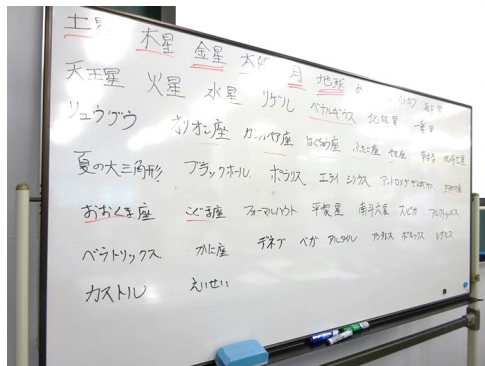 土星 木星 金星 太陽 月 地球
天王星 火星 水星 リゲル ベテルギウス 北極星 一番星
リュウグウ オリオン座 カシオペア座 はくちょう座 ふたご座 北斗七星
夏の大三角形 ブラックホール ポラリス シリウス
おおぐま座 こぐま座 フォーマルハウト 南斗六星 スピカ アルクトゥルス
ベラトリックス かに座 デネブ ベガ アルタイル アンタレス ポルックス レグルス
カストル えいせい